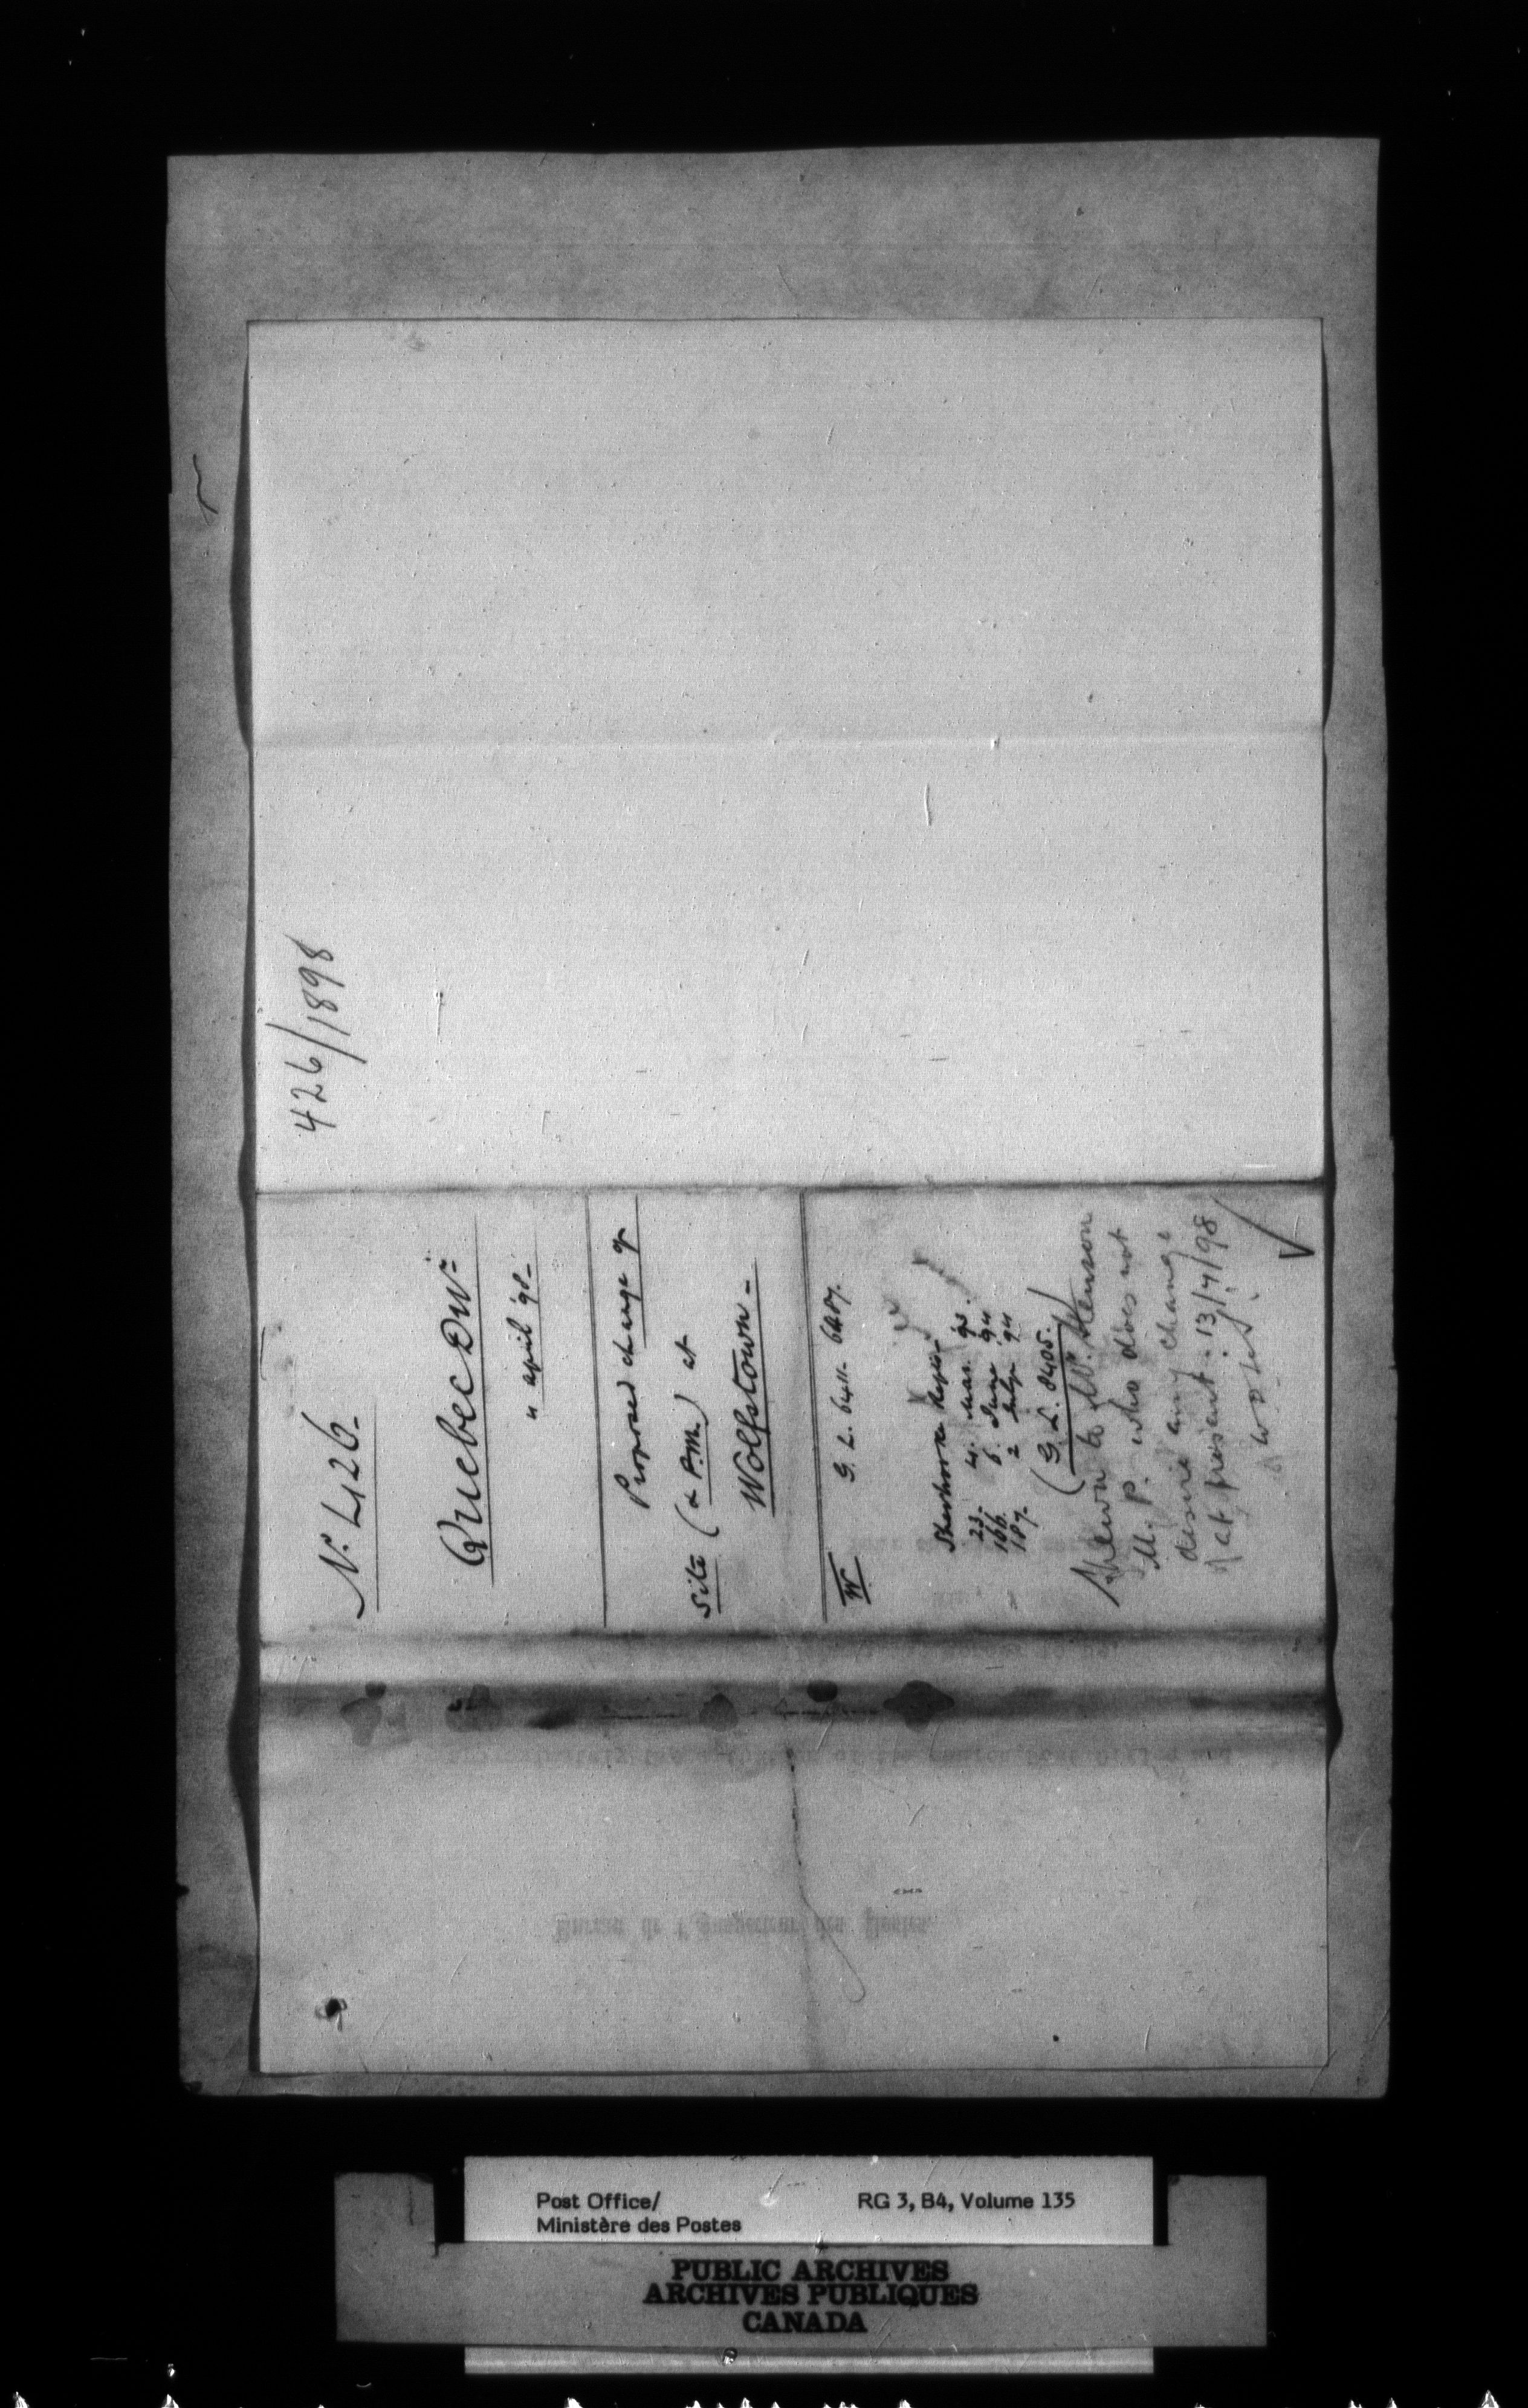 426/1898
No. 426.
Quebec Dn.
" april '98.
Proposed change of
Site (& P.M.) at
Wolfstown.
W G. L. 6411. 6487.
Sherbrooke
23. 4. Mar. 93.
166. 6. June 94
187. 2 July 94
(G. L. 8405.)
Shewn to Mr. Stenson
M. P. who does not
desire any change
at present. 13/4/98
Bureau de l'Inspecteur des Postes.
Post Office/
Ministère des Postes
RG 3, B4, Volume 135
PUBLIC ARCHIVES
ARCHIVES PUBLIQUES
CANADA